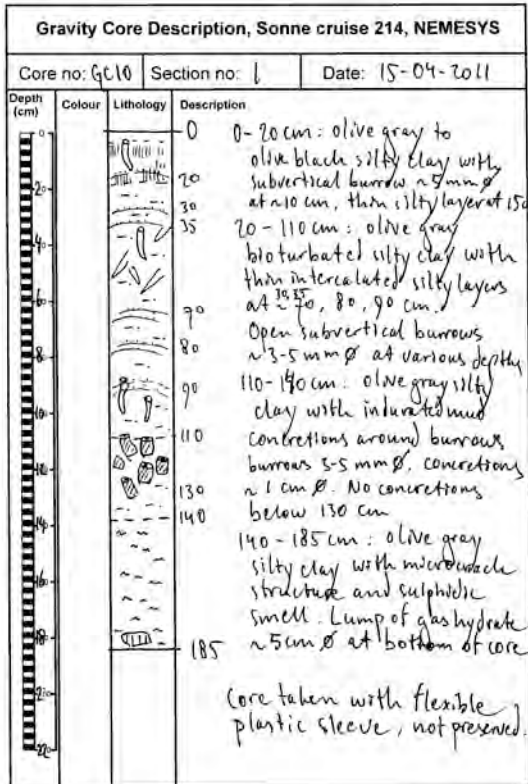 Gravity Core Description, Sonne cruise 214, NEMESYS
Core no: GC10 Section no: 1 Date: 15-04-2011
Depth (cm) Colour Lithology Description
0
20
30
35
70
80
90
110
130
140
185
0-20 cm: olive gray to
olive black silty clay with
subvertical burrow ~5mm Ø
at ~10 cm, thin silty layer at 15c
20-110 cm: olive gray
bioturbated silty clay with
thin intercalated silty layers
at ~ 30, 35 70, 80, 90 cm.
Open subvertical burrows
~3-5 mm Ø at various depths
110-140 cm: olive gray silty
clay with indurated mud
concretions around burrows
burrows 3-5 mm Ø, concretions
~1 cm Ø. No concretions
below 130 cm
140-185 cm: olive gray
silty clay with microcrack
structure and sulphidic
smell. Lump of gas hydrate
~5cm Ø at bottom of core
Core taken with flexible
plastic sleeve, not preserved.